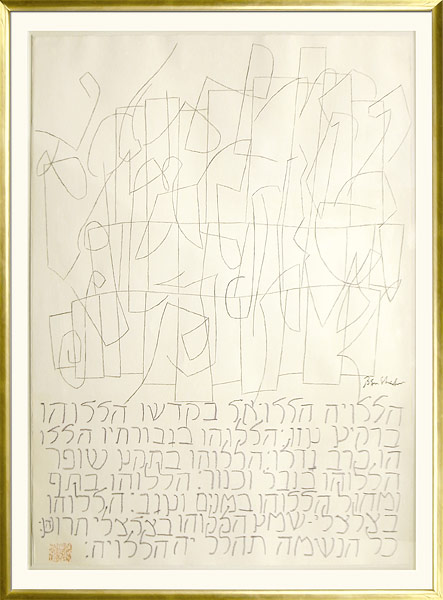 Ben Shahn
הללויה הללו־אל בקדשו הללוהו
ברקיע עזו: הללוהו בגבורתיו הללו
הו כרוב גדלו: הללוהו בתקע שופר
הללוהו בנבל וכנור: הללוהו בתף
ומחול הללוהו במנים ועגב: הללוהו
בצלצלי־שמע הללוהו בצלצלי תרועה:
כל הנשמה תהלל יה הללויה: